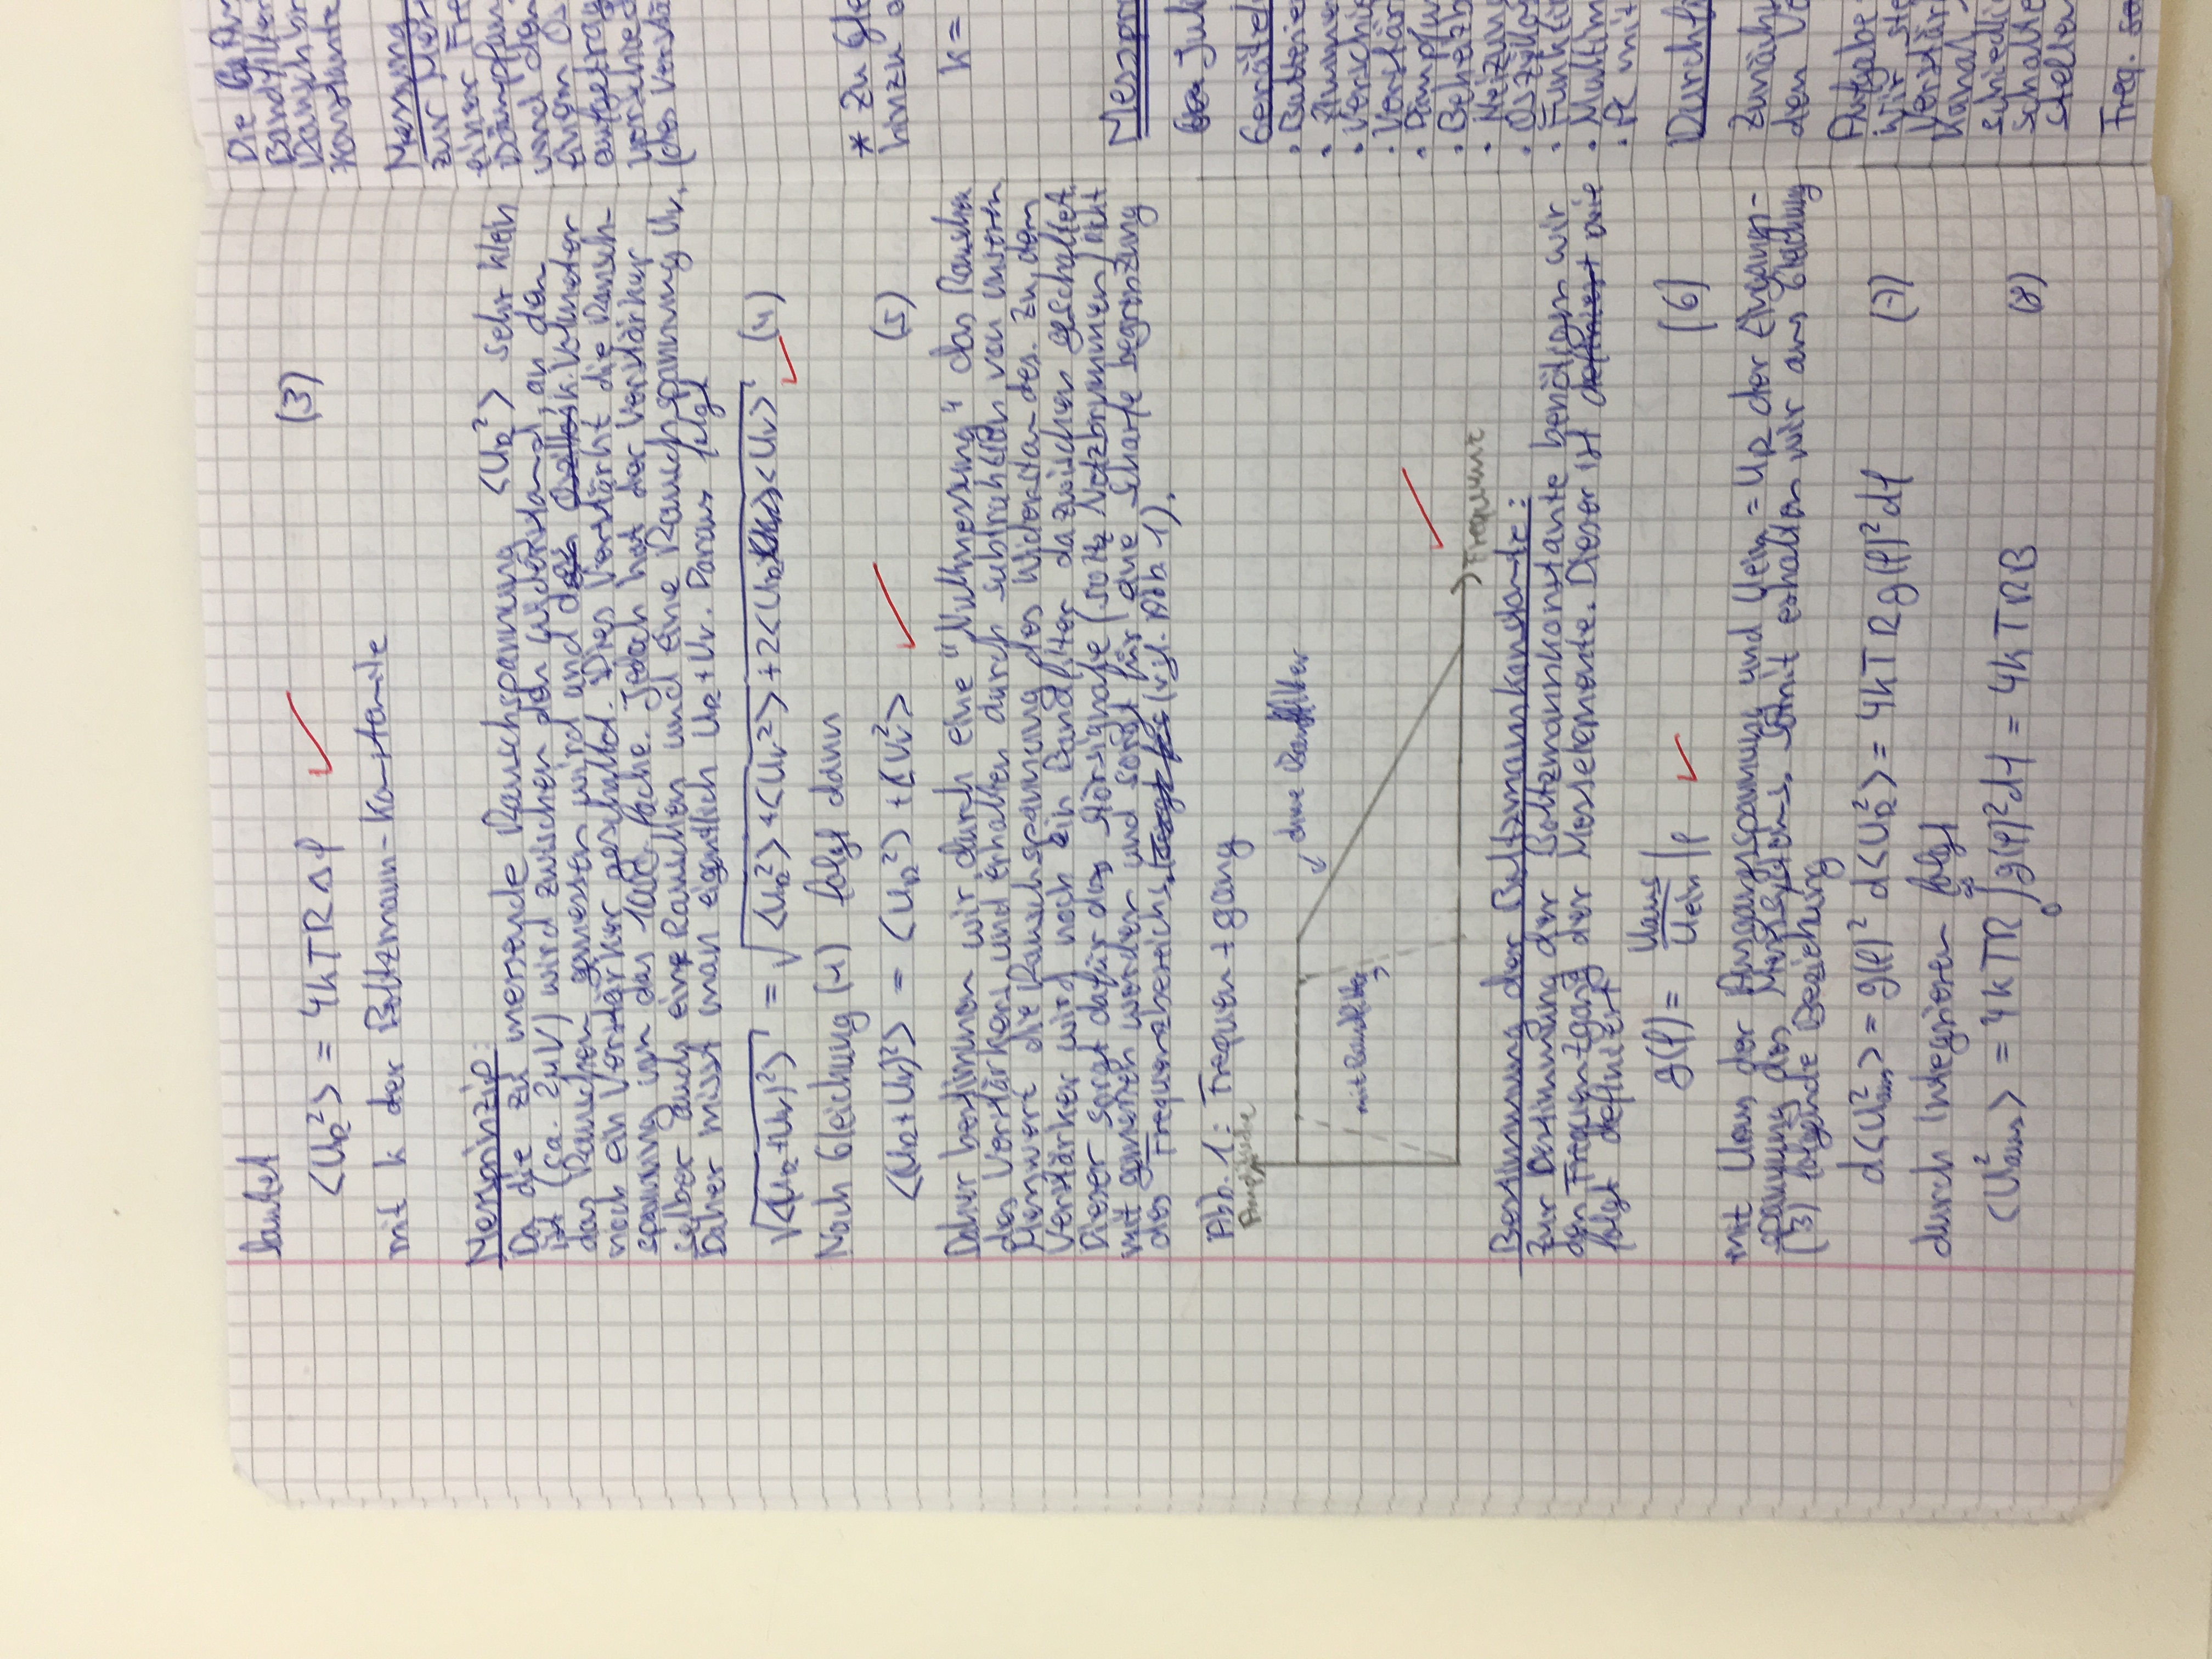 lautet
<U_R²> = 4kTRΔf (3)
mit k der Boltzmann-Konstante
Messprinzip:
Da die zu messende Rauschspannung <U_R²> sehr klein
ist (ca. 2μV) wird zwischen den Widerstand, an dem
das Rauschen gemessen wird und Voltmeter
noch ein Verstärker geschaltet. Dies Verstärkt die Rausch-
spannung um das 1000 fache. Jedoch hat der Verstärker
selber auch ein Rauschen und eine Rauschspannung U_V.
Daher misst man eigentlich U_R+U_V. Daraus folgt
√<(U_R+U_V)²> = √<U_R²>+<U_V²>+2<U_R><U_V> (4)
Nach Gleichung (4) folgt dann
<(U_R+U_V)²> = <U_R²> + <U_V²> (5)
Daher bestimmen wir durch eine "Nullmessung" das Rauschen
des Verstärkers und erhalten durch subtraktion von unseren
Messwert die Rauschspannung des Widerstandes. Zu dem
Verstärker wird noch ein Bandfilter dazwischen geschaltet.
Dieser sorgt dafür das Störsignale (50Hz Netzbrummen) nicht
mit gemessen werden und sorgt für eine scharfe begrenzung
des Frequenzbereichs. (vgl. Abb. 1).
Abb. 1: Frequenzgang
Amplitude
ohne Bandfilter
mit Bandfilter
Frequenz
Bestimmung der Boltzmannkonstante:
Zur Bestimmung der Boltzmannkonstante benötigen wir
den Frequenzgang der Messelemente. Dieser ist definiert wie
folgt definiert
g(f) = U_aus/U_ein |f (6)
mit U_aus der Ausgangsspannung und U_ein = U_R der Eingangs-
spannung des Messsystems. Somit erhalten wir aus Gleichung
(3) folgende Beziehung
d<U²_aus> = g(f)² d<U_R²> = 4kTRg(f)²df (7)
durch Integrieren folgt
<U²_aus> = 4kTR ∫₀^∞ g(f)²df = 4kTRB (8)
Die
Bandfilter
Rausch
Konstante
Messung
zur
einer
Dämpfun
und den
einem Os
aufgetrag
verschied
(des Verstä
* Zu Gle
hinzu
k =
Messpro
Jul
Gerätel
· Batterie
· Verschie
· Verstär
· Dämpfu
· Beheizb
· Heizung
· Oszillos
· Funkti
· Multim
· PC mit
Durchfü
Zunäch
den Ve
Aufgabe
Wir ste
Verstär
Kanal
schiedli
schalte
stellen
Freq.